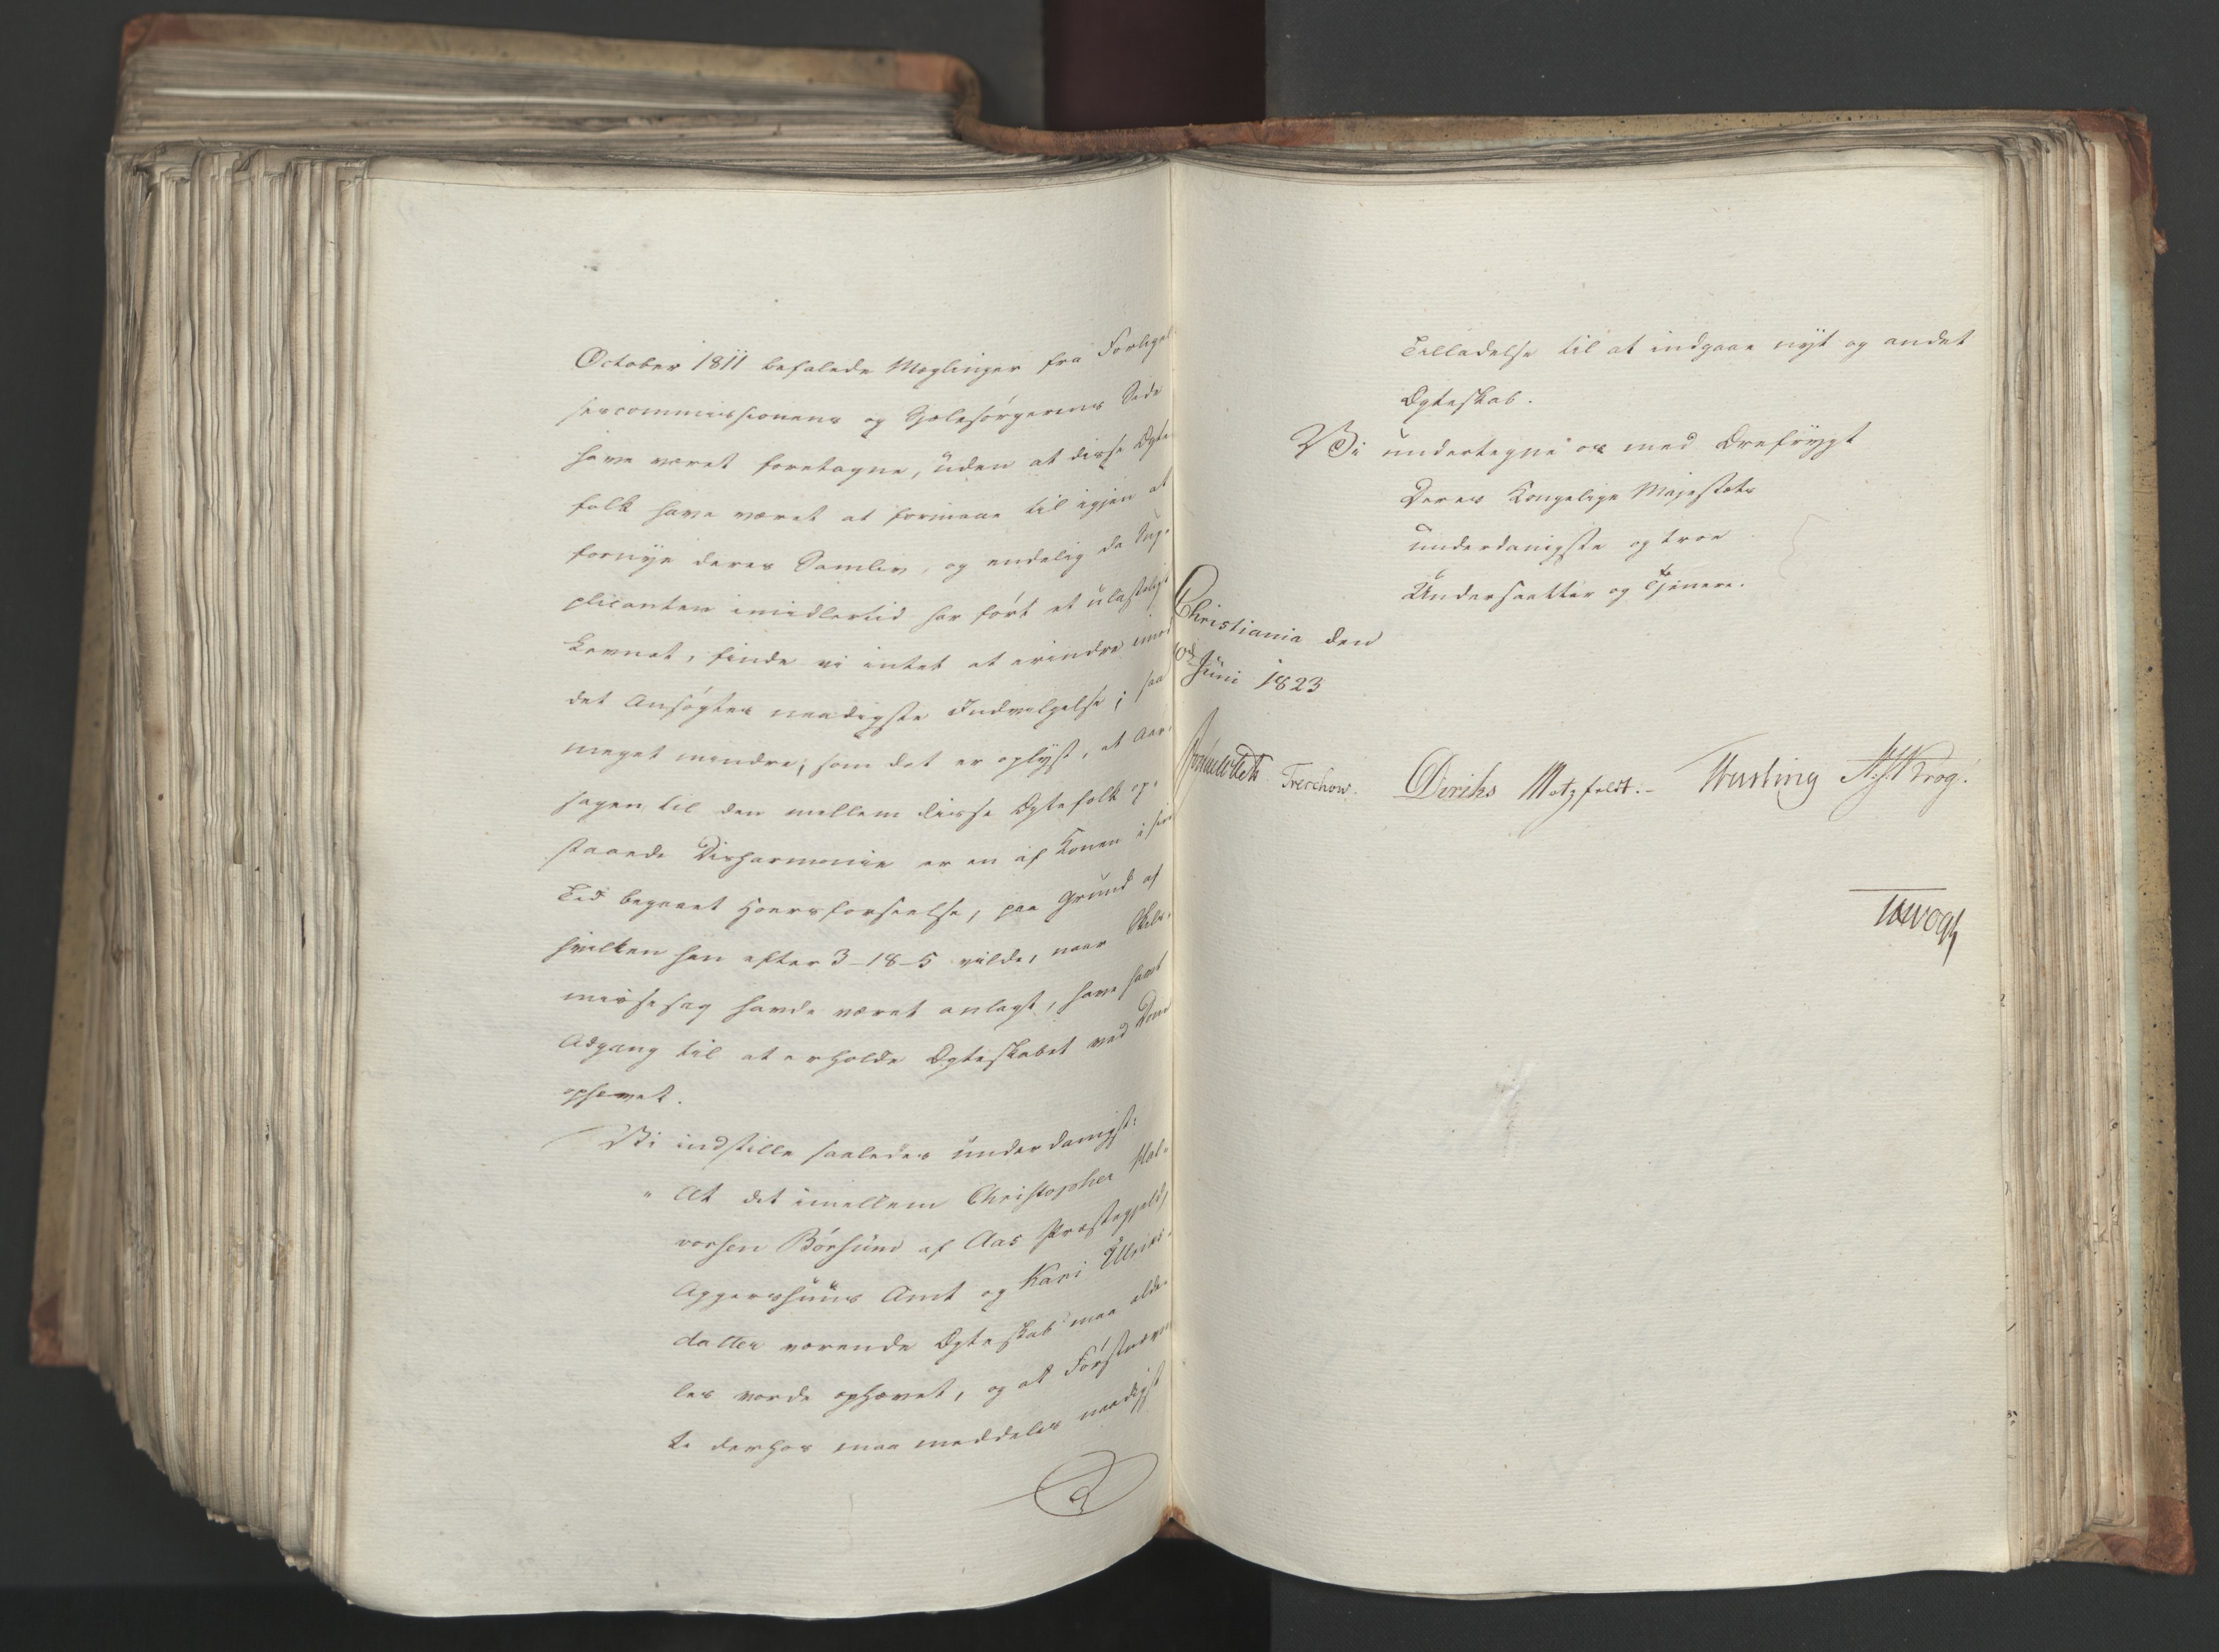 October 1811 befalede Mæglinger fra Forligel
sescommissionens og Sjælesørgerens Side
have været foretagne, uden at disse Ægte
folk have været at formaae til igjen at
fornye deres Samliv, og endelig da Sup-
plicanten imidlertid har ført et ulasteligt
Levnet, finde vi intet at erindre imod
det Ansøgtes naadigste Indvilgelse; saa
meget mindre, som det er oplyst, at Aar-
sagen til den mellem disse Ægtefolk op-
staaede Disharmonie er en af Konen i sin
Tid begaaet Hoersforseelse, paa Grund af
hvilken han efter 3-18-5 vilde, naar Skils-
missesag havde været anlagt, have havt
Adgang til at erholde Ægteskabet ved Dom
ophævet.
Vi indstille saaledes underdanigst:
" At det imellem Christopher Hal-
vorsen Börsum af Aas Præstegjeld,
Aggershuus Amt og Kari Ullriks-
datter værende Ægteskab maa alde-
les vorde ophævet, og at Førstnævn
te derhos maa meddeles naadigst
Tilladelse til at indgaae nyt og andet
Ægteskab.
Vi undertegne os med Ærefrygt
Deres Kongelige Majestæts
underdanigste og troe
Undersaatter og Tjenere.
Christiania den
Juni 1823
Treschow. Diriks Motzfeldt.- Krog.